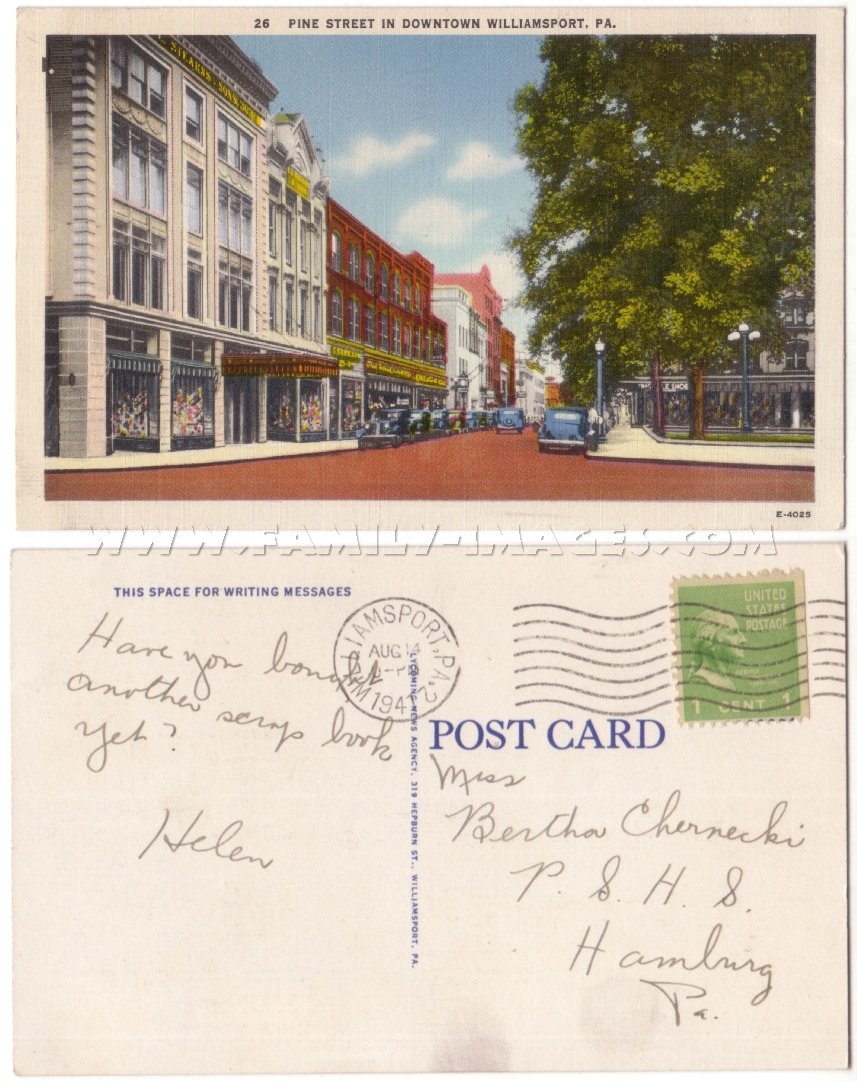 26 PINE STREET IN DOWNTOWN WILLIAMSPORT, PA.
L. L. STEARNS & SONS
E-4025
WWW.FAMILY-IMAGES.COM
THIS SPACE FOR WRITING MESSAGES
Have you bought
another scrap book
yet?
Helen
LIAMSPORT, PA.
AUG 14
PM
1942
LYCOMING NEWS AGENCY, 319 HEPBURN ST., WILLIAMSPORT, PA.
UNITED
STATES
POSTAGE
1 CENT 1
POST CARD
Miss
Bertha Chernecki
P. S. H. S.
Hamburg
Pa.